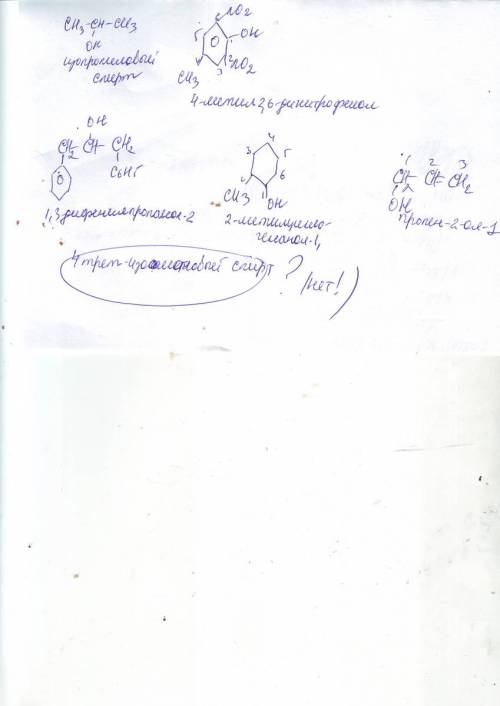 CH3-CH-CH3
OH
изопропиловый
спирт
NO2
5 OH
1
2
NO2
4 3
CH3
4-метил 2,6-динитрофенол
OH
CH2 CH - CH2
C6H5
1,3 дифенилпропанол-2
4
3 5
6
2 1
CH3 OH
2-метилцикло-
гексанол-1,
1 2 3
CH2 - CH = CH2
OH
пропен-2-ол-1
спирт ? (нет!)